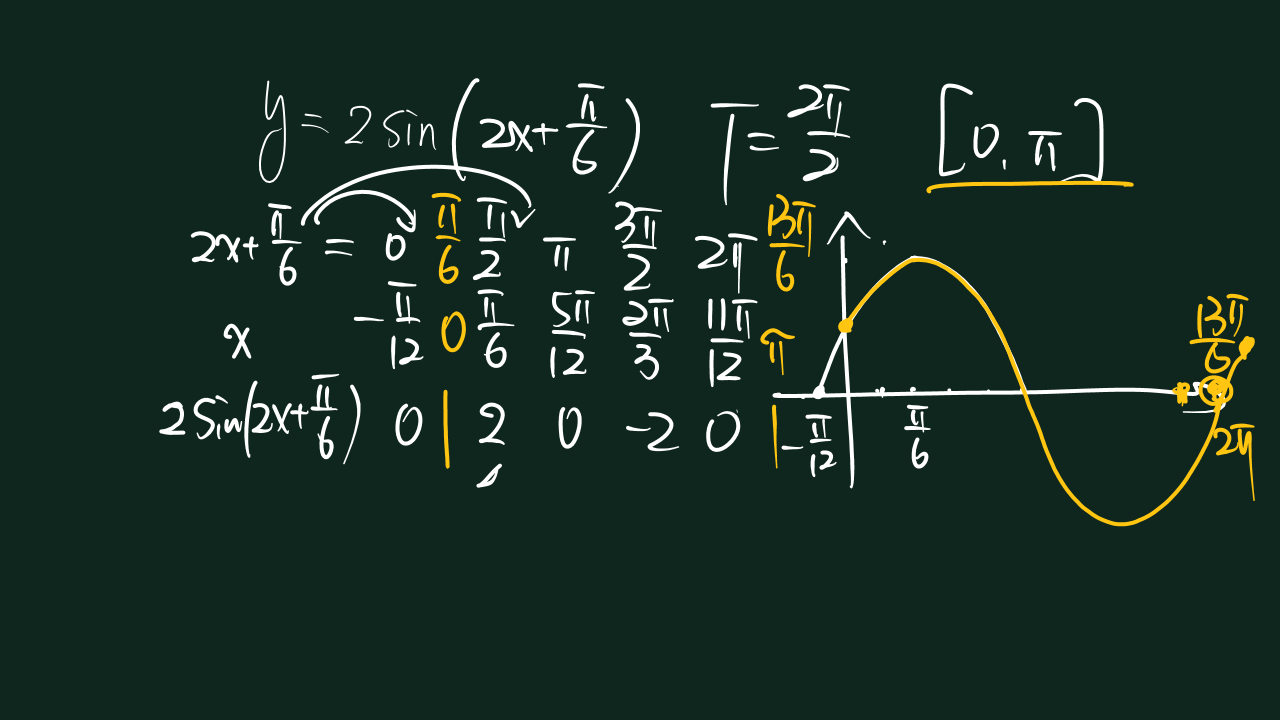 y = 2 sin (2x + π/6) T = 2π/2 [0, π]
2x + π/6 = 0 π/6 π/2 π 3π/2 2π 13π/6
x -π/12 0 π/6 5π/12 2π/3 11π/12 π
2 Sin(2x + π/6) 0 1 2 0 -2 0 1
13π/6
-π/12 π/6 2π